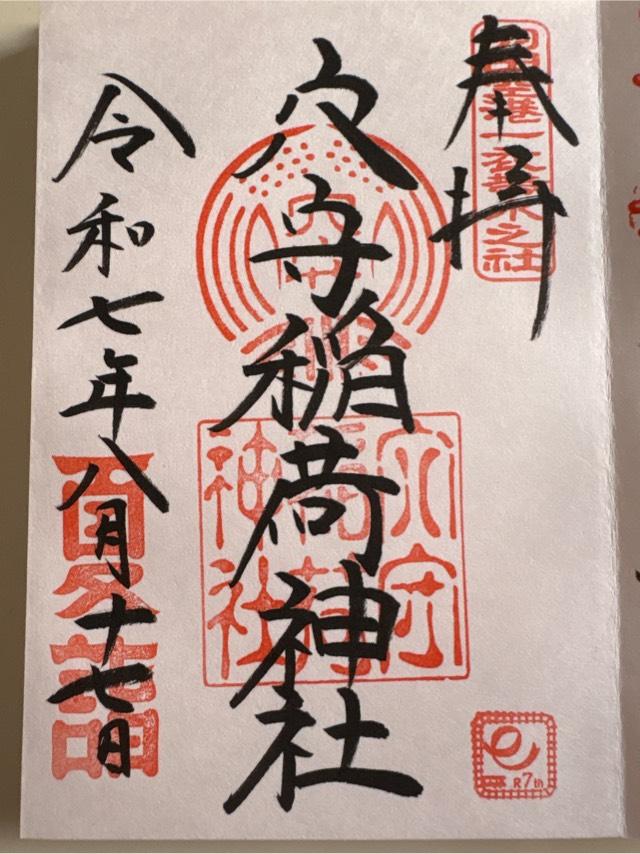 奉拝
穴守稲荷神社
令和七年八月十七日
穴守
稲荷
神社
R7th